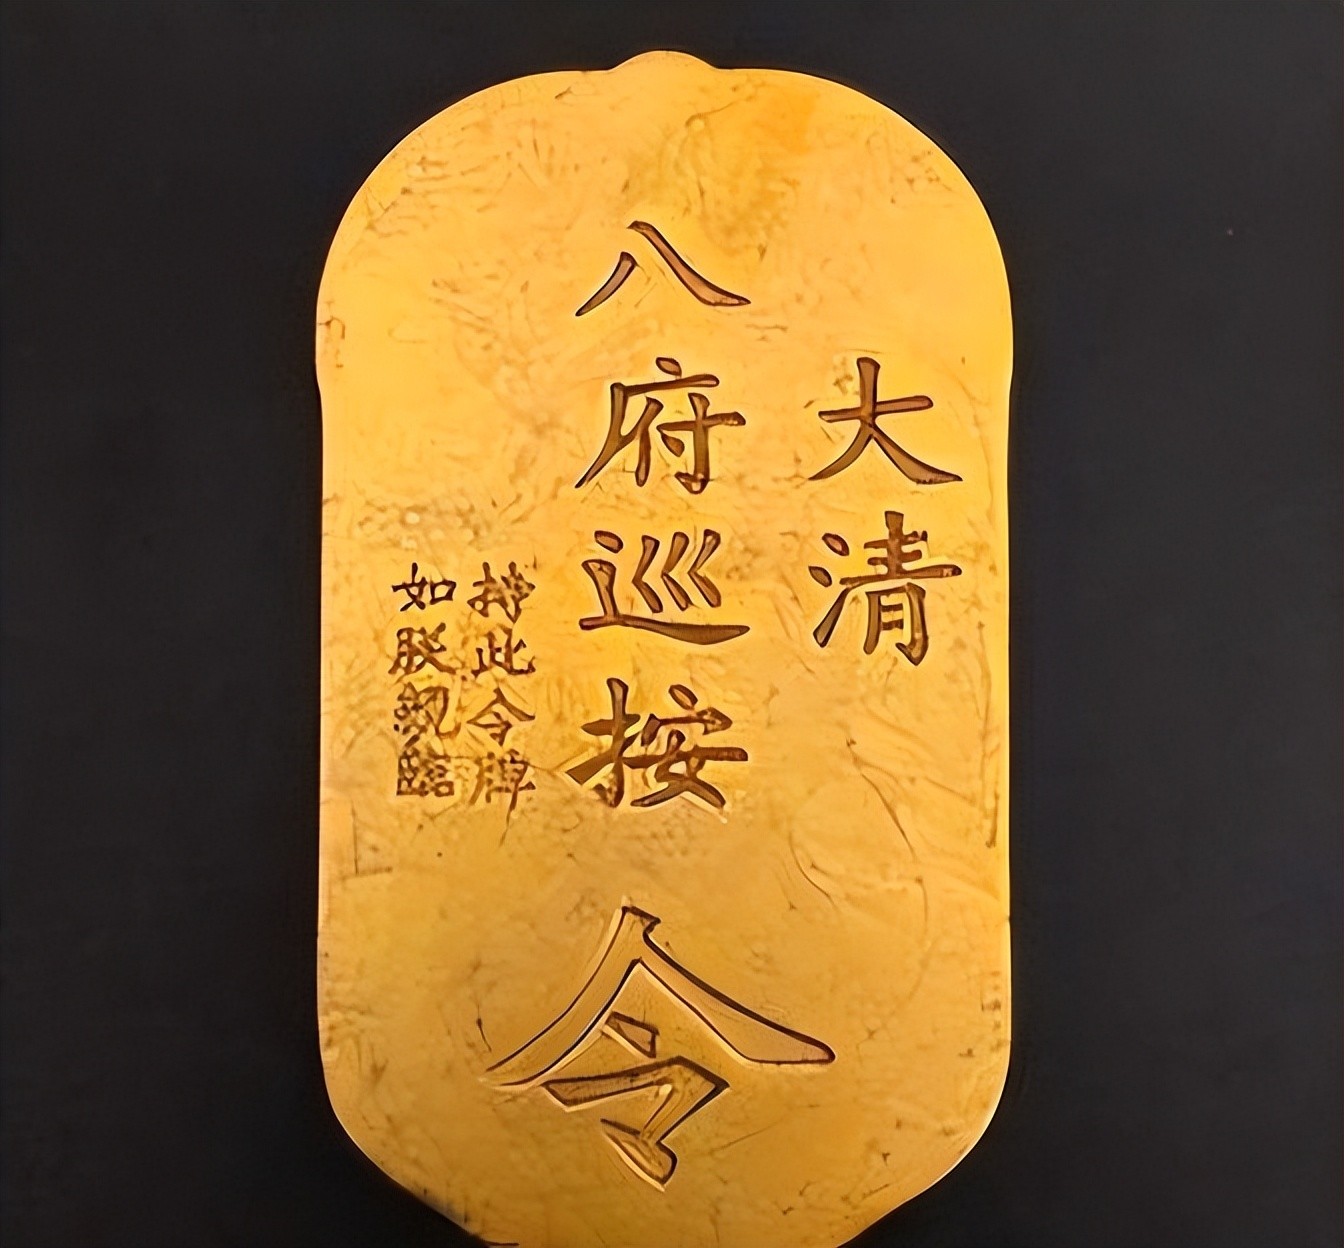 大清
八府巡按
令
持此令牌
如朕親臨